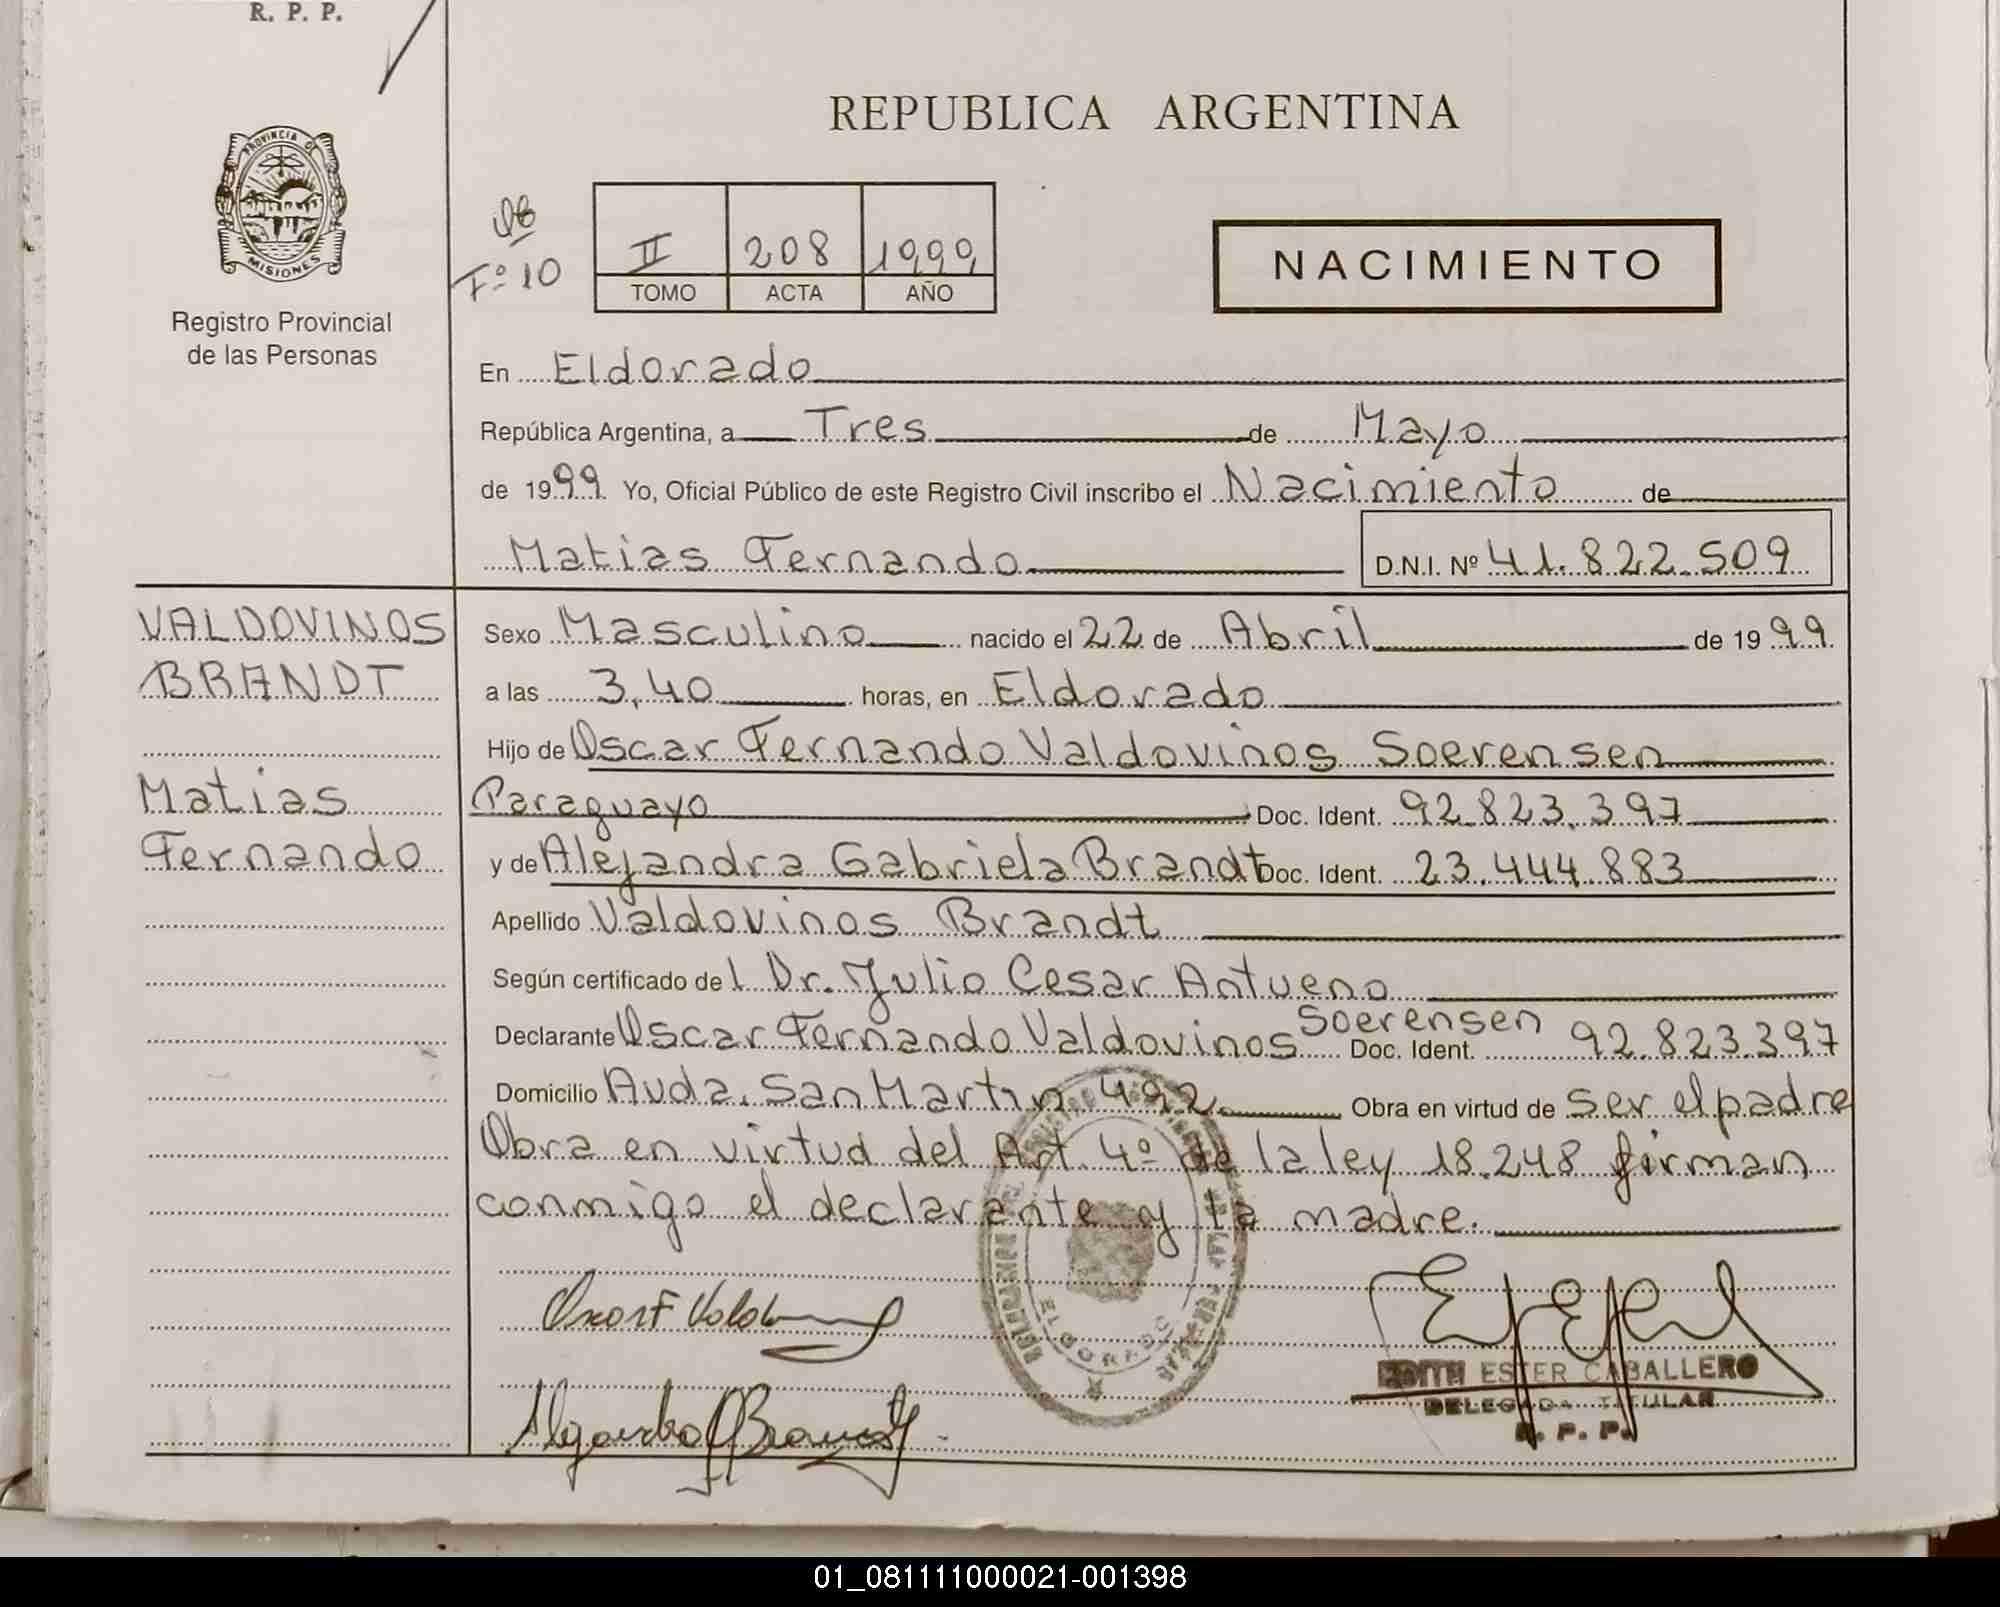 R. P. P.
REPUBLICA ARGENTINA
PROVINCIA DE
MISIONES
Registro Provincial
de las Personas
Fº 10
II 208 1999
TOMO ACTA AÑO
NACIMIENTO
En Eldorado
República Argentina, a Tres de Mayo
de 1999 Yo, Oficial Público de este Registro Civil inscribo el Nacimiento de
Matias Fernando D.N.I. Nº 41.822.509
VALDOVINOS
BRANDT
Matias
Fernando
Sexo Masculino nacido el 22 de Abril de 1999
a las 3,40 horas, en Eldorado
Hijo de Oscar Fernando Valdovinos Soerensen
Paraguayo Doc. Ident. 92.823.397
y de Alejandra Gabriela Brandt Doc. Ident. 23.444.883
Apellido Valdovinos Brandt
Según certificado del Dr. Julio Cesar Antueno
Declarante Oscar Fernando Valdovinos Soerensen Doc. Ident. 92.823.397
Domicilio Avda. San Martin 492 Obra en virtud de ser el padre
Obra en virtud del Art. 4º de la ley 18.248 firman
conmigo el declarante y la madre.
ELDORADO
EDITH ESTER CABALLERO
DELEGADA TITULAR
R. P. P.
01_081111000021-001398